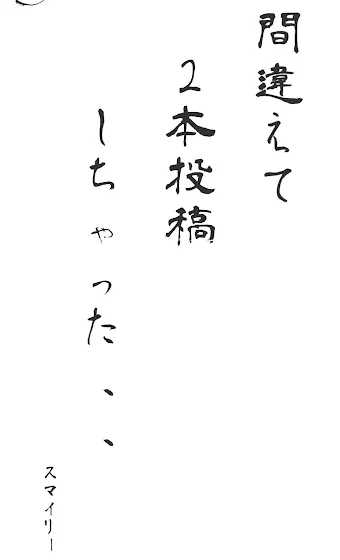 間違えて
2本投稿
しちゃった、、
スマイリー